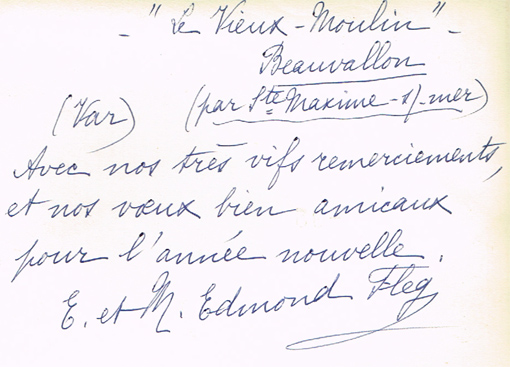 - "Le Vieux-Moulin" -
Beauvallon
(Var) (par Ste Maxime-s/-mer)
Avec nos très vifs remerciements,
et nos vœux bien amicaux
pour l'année nouvelle.
E. et M. Edmond Fleg